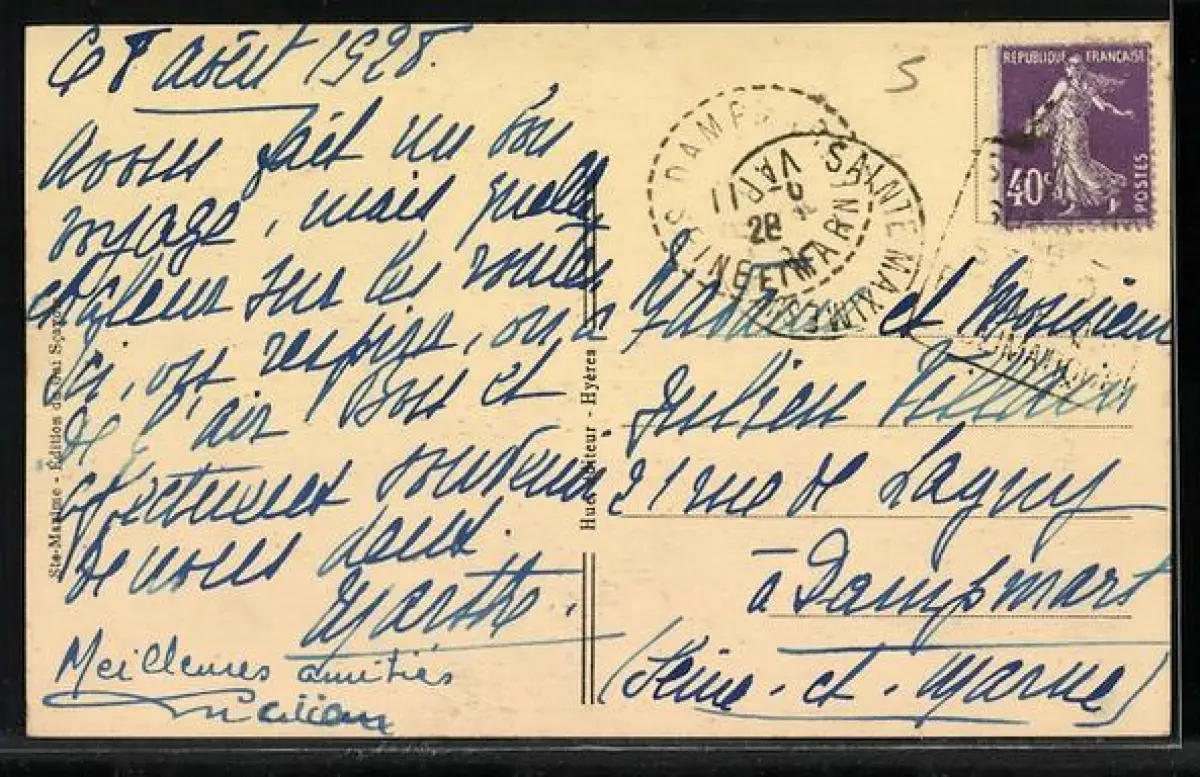 Le 8 Août 1928.
Avons fait un bon
voyage, mais quelle
chaleur sur les routes
Ici, on respire, on a
de l'air. Bons et
affectueux souvenirs
de nous deux.
Marthe.
Meilleures amitiés
Ste-Maxime - Édition
Hué, Éditeur - Hyères
5
RÉPUBLIQUE FRANÇAISE
40c
POSTES
SEINE ET MARNE
SAINTE MAXIME
VAR
28
Madame et Monsieur
Julien
21 rue de Lagny
à Dampmart
(Seine-et-Marne)